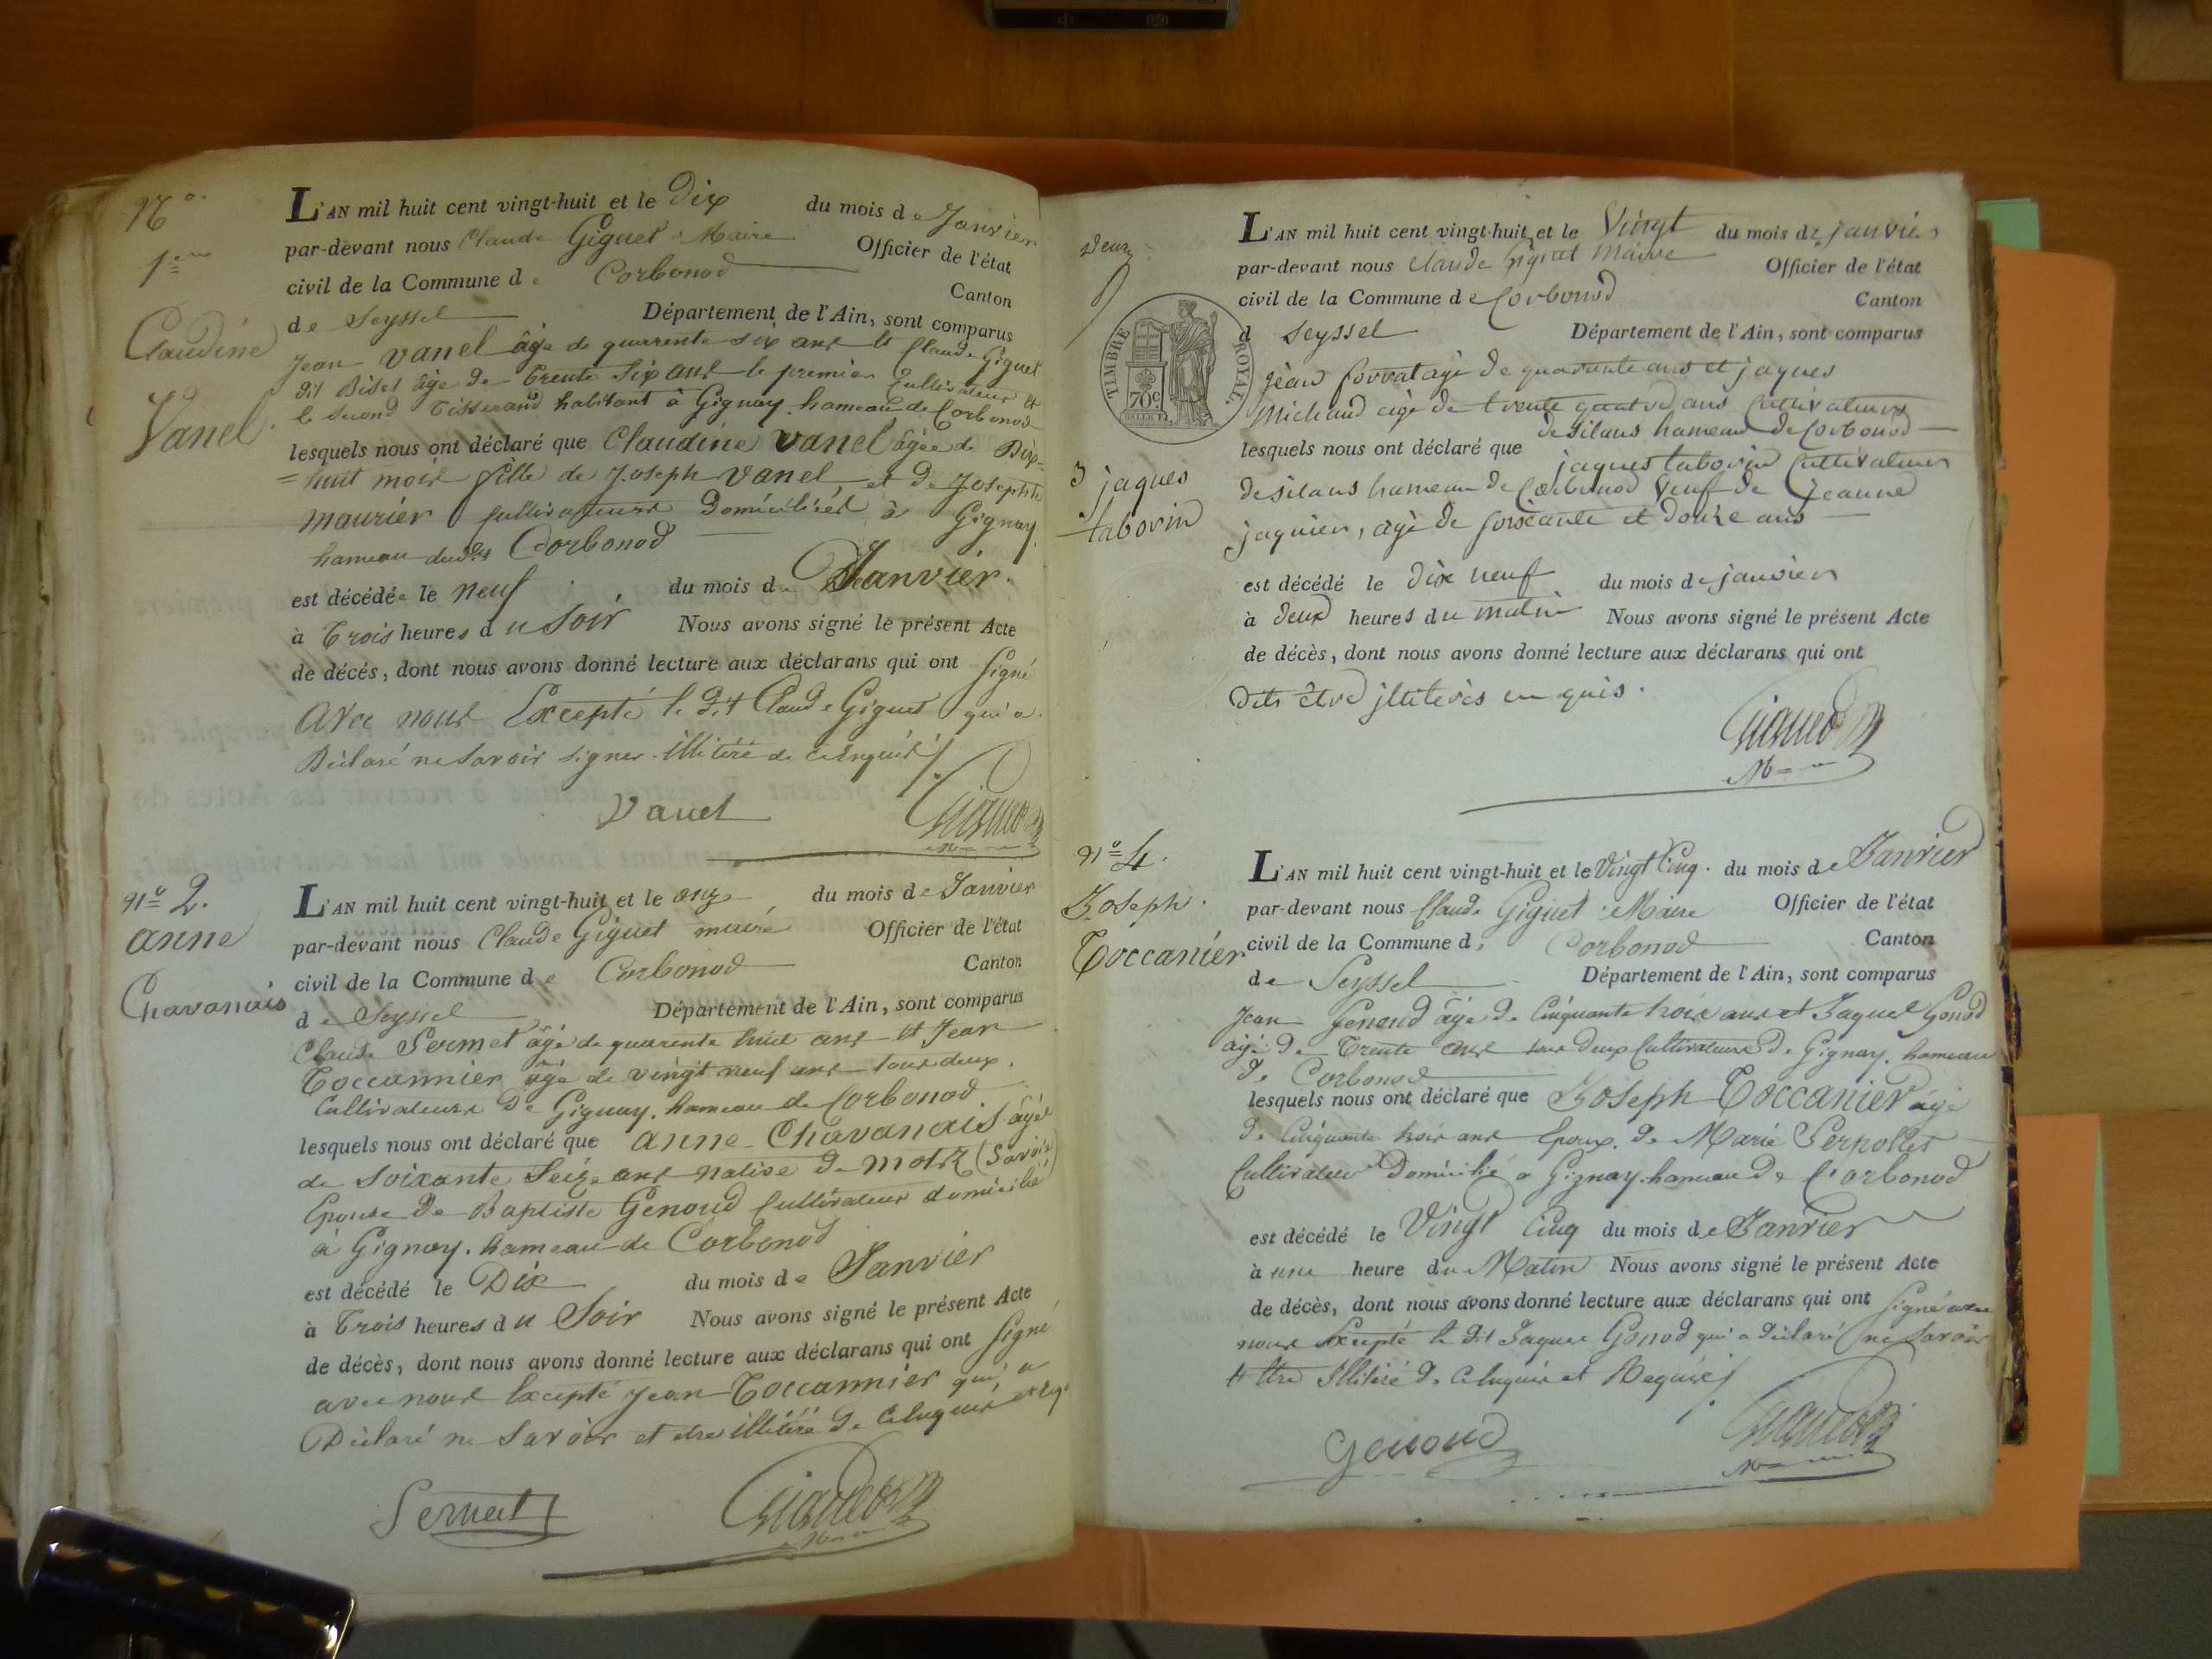 N°
1er
Claudine
Vanel.
L'AN mil huit cent vingt-huit et le Dix du mois de Janvier
par-devant nous Claude Giguet Maire Officier de l'état
civil de la Commune de Corbonod Canton
de Seyssel Département de l'Ain, sont comparus
Jean Vanel âgé de quarente six ans et Claude Giguet
dit Biset âgé de trente six ans le premier Cultivateur et
le second Tisserand habitant à Gignay hameau de Corbonod
lesquels nous ont déclaré que Claudine Vanel âgée de Dix=
=huit mois fille de Joseph Vanel et de Josephte
Maurier Cultivateurs Domiciliés à Gignay
hameau dudit Corbonod
est décédée le neuf du mois de Janvier.
à Trois heures du Soir Nous avons signé le présent Acte
de décés, dont nous avons donné lecture aux déclarans qui ont signé
avec nous Excepté le dit Claude Giguet qui a
Déclaré ne savoir signer illitéré de ce enquis
Vanel Giguet
M
N° 2.
anne
Chavanais
L'AN mil huit cent vingt-huit et le onze du mois de Janvier
par-devant nous Claude Giguet maire Officier de l'état
civil de la Commune de Corbonod Canton
de Seyssel Département de l'Ain, sont comparus
Claude Sermet âgé de quarente huit ans et Jean
Toccannier âgé de vingt neuf ans tous deux
Cultivateurs de Gignay. hameau de Corbonod
lesquels nous ont déclaré que anne Chavanais âgée
de soixante Seize ans native de Motz (Savoie)
Epouse de Baptiste Genoud Cultivateur domicilié
à Gignay. hameau de Corbonod
est décédé le Dix du mois de Janvier
à Trois heures du Soir Nous avons signé le présent Acte
de décès, dont nous avons donné lecture aux déclarans qui ont signé
avec nous Excepté Jean Toccannier qui a
Déclaré ne savoir et etre illitéré de ce enquis
Sermet Giguet
M
Deux
TIMBRE ROYAL.
70c.
3 jaques
taborin
L'AN mil huit cent vingt-huit et le Vingt du mois de janvier
par-devant nous Claude Giguet Maire Officier de l'état
civil de la Commune de Corbonod Canton
d Seyssel Département de l'Ain, sont comparus
jean agé de quarante ans et jaques
Michaud agé de trente quatre ans Cultivateurs
de silans hameau de Corbonod
lesquels nous ont déclaré que jaques taborin Cultivateur
de silans hameau de Corbonod Veuf de Jeanne
jaquier, agé de soixante et douze ans
est décédé le dix neuf du mois de janvier
à deux heures du matin Nous avons signé le présent Acte
de décès, dont nous avons donné lecture aux déclarans qui ont
dits être jlliterés en quis.
Giguet
M
N° 4.
Joseph.
Toccanier
L'AN mil huit cent vingt-huit et le Vingt Cinq. du mois de Janvier
par-devant nous Claude Giguet Maire Officier de l'état
civil de la Commune de Corbonod Canton
de Seyssel Département de l'Ain, sont comparus
Jean Genoud âgé de Cinquante trois ans et Jaques Gonod
âgé de Trente ans tous deux Cultivateurs de Gignay. hameau
de Corbonod
lesquels nous ont déclaré que Joseph Toccanier âgé
de Cinquante trois ans Epoux de Marie Pernollet
Cultivateur Domicilié a Gignay. hameau de Corbonod
est décédé le Vingt Cinq du mois de Janvier
à une heure du Matin Nous avons signé le présent Acte
de décès, dont nous avons donné lecture aux déclarans qui ont signé avec
nous Excepté le dit Jaques Gonod qui a déclaré ne savoir
et être Illitéré de ce enquis et Requis
Genoud Giguet
M